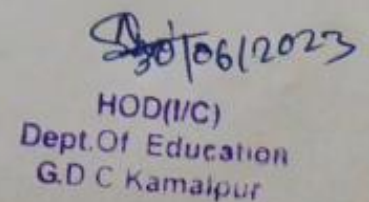 30/06/2023
HOD(I/C)
Dept.Of Education
G.D C Kamalpur